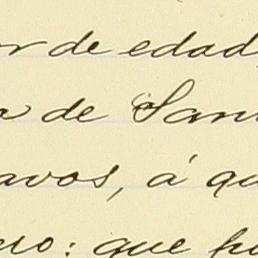 or de edad,
a de San
avos, á qu
ro: que fu